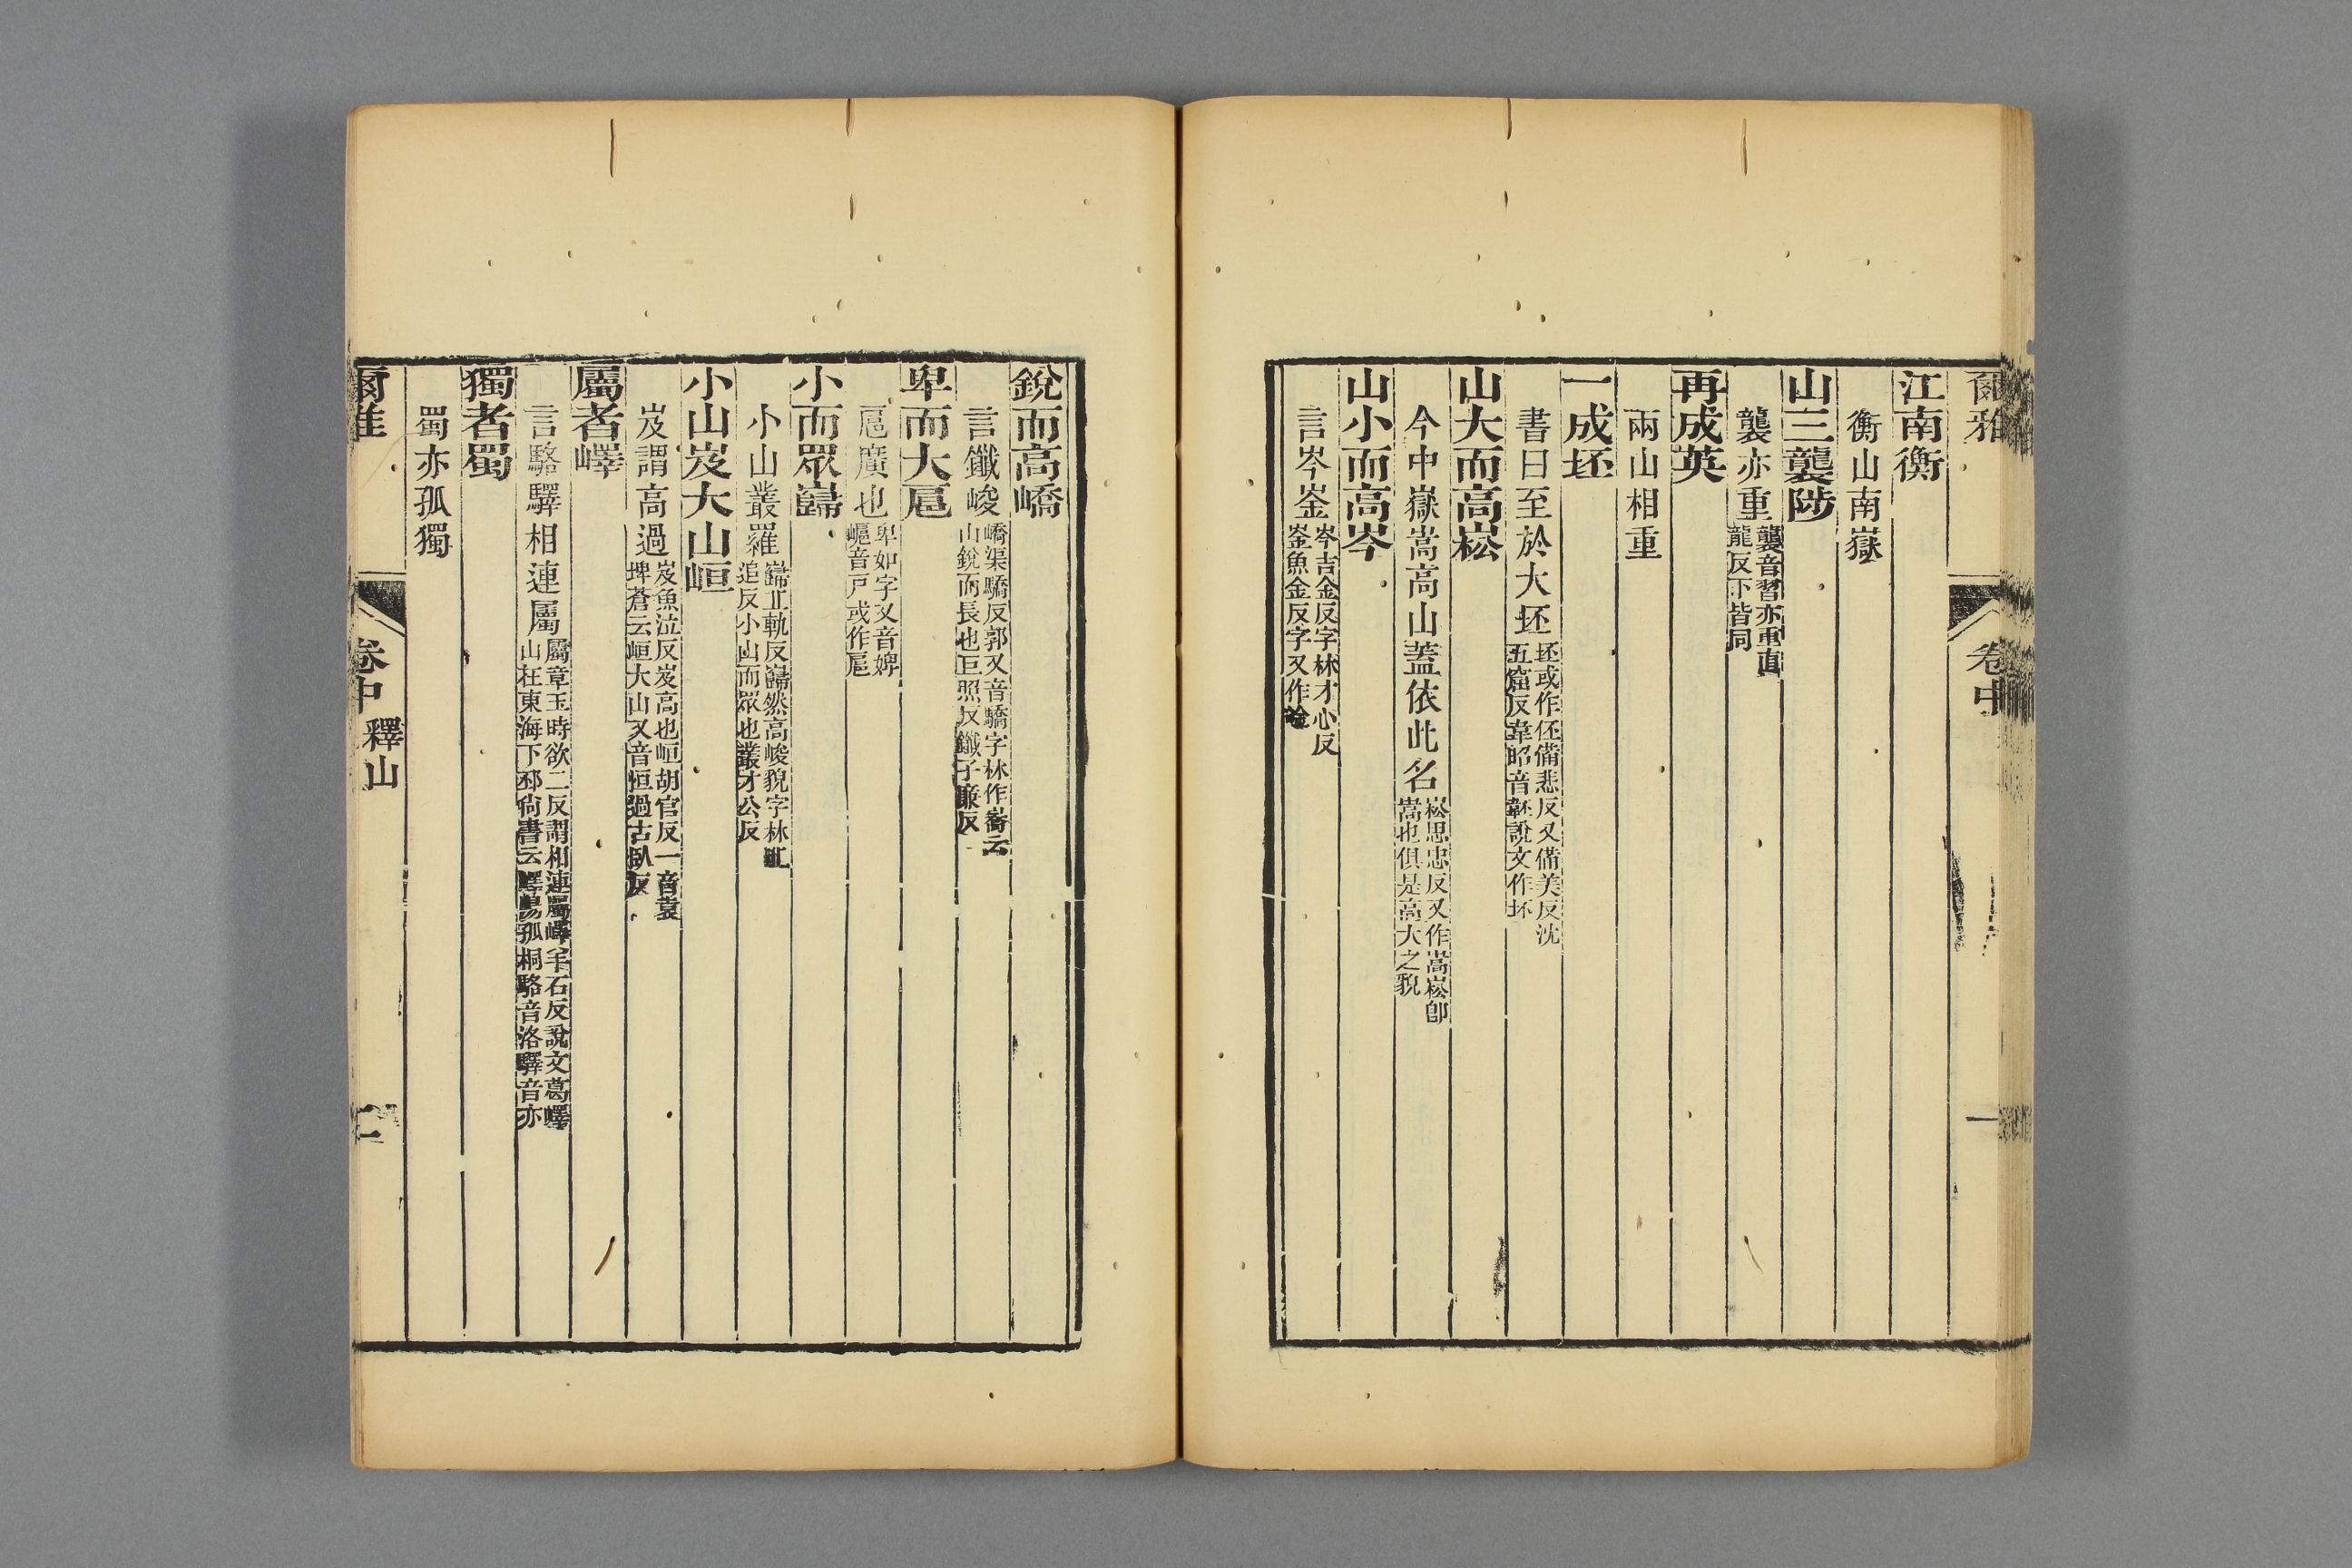 爾雅
卷中
一
江南衡
衡山南嶽
山三襲陟
襲亦重
襲音習亦重直
龍反下皆同
再成英
兩山相重
一成坯
書曰至於大坯
坯或作伾備悲反又備美反沈
五窟反韋昭音𡋯說文作坏
山大而高崧
今中嶽嵩高山蓋依此名
崧思忠反又作嵩崧卽
嵩也俱是高大之貌
山小而高岑
言岑崟
岑吉金反字林才心反
崟魚金反字又作
銳而高嶠
言鑯峻
嶠渠驕反郭又音驕字林作喬云
山銳而長也巨照反鑯子廉反
卑而大扈
扈廣也
卑如字又音婢
嶇音戸或作扈
小而眾巋
小山叢羅
巋丘軌反巋然高峻貌字林丘
追反小山而眾也叢才公反
小山岌大山峘
岌謂高過
岌魚泣反岌高也峘胡官反一音袁
埤蒼云峘大山又音恒過古臥反
屬者嶧
言駱驛相連屬
屬章玉時欲二反謂相連屬嶧羊石反說文葛嶧
山在東海下邳尙書云嶧陽孤桐駱音洛驛音亦
獨者蜀
蜀亦孤獨
爾雅
卷中
釋山
二